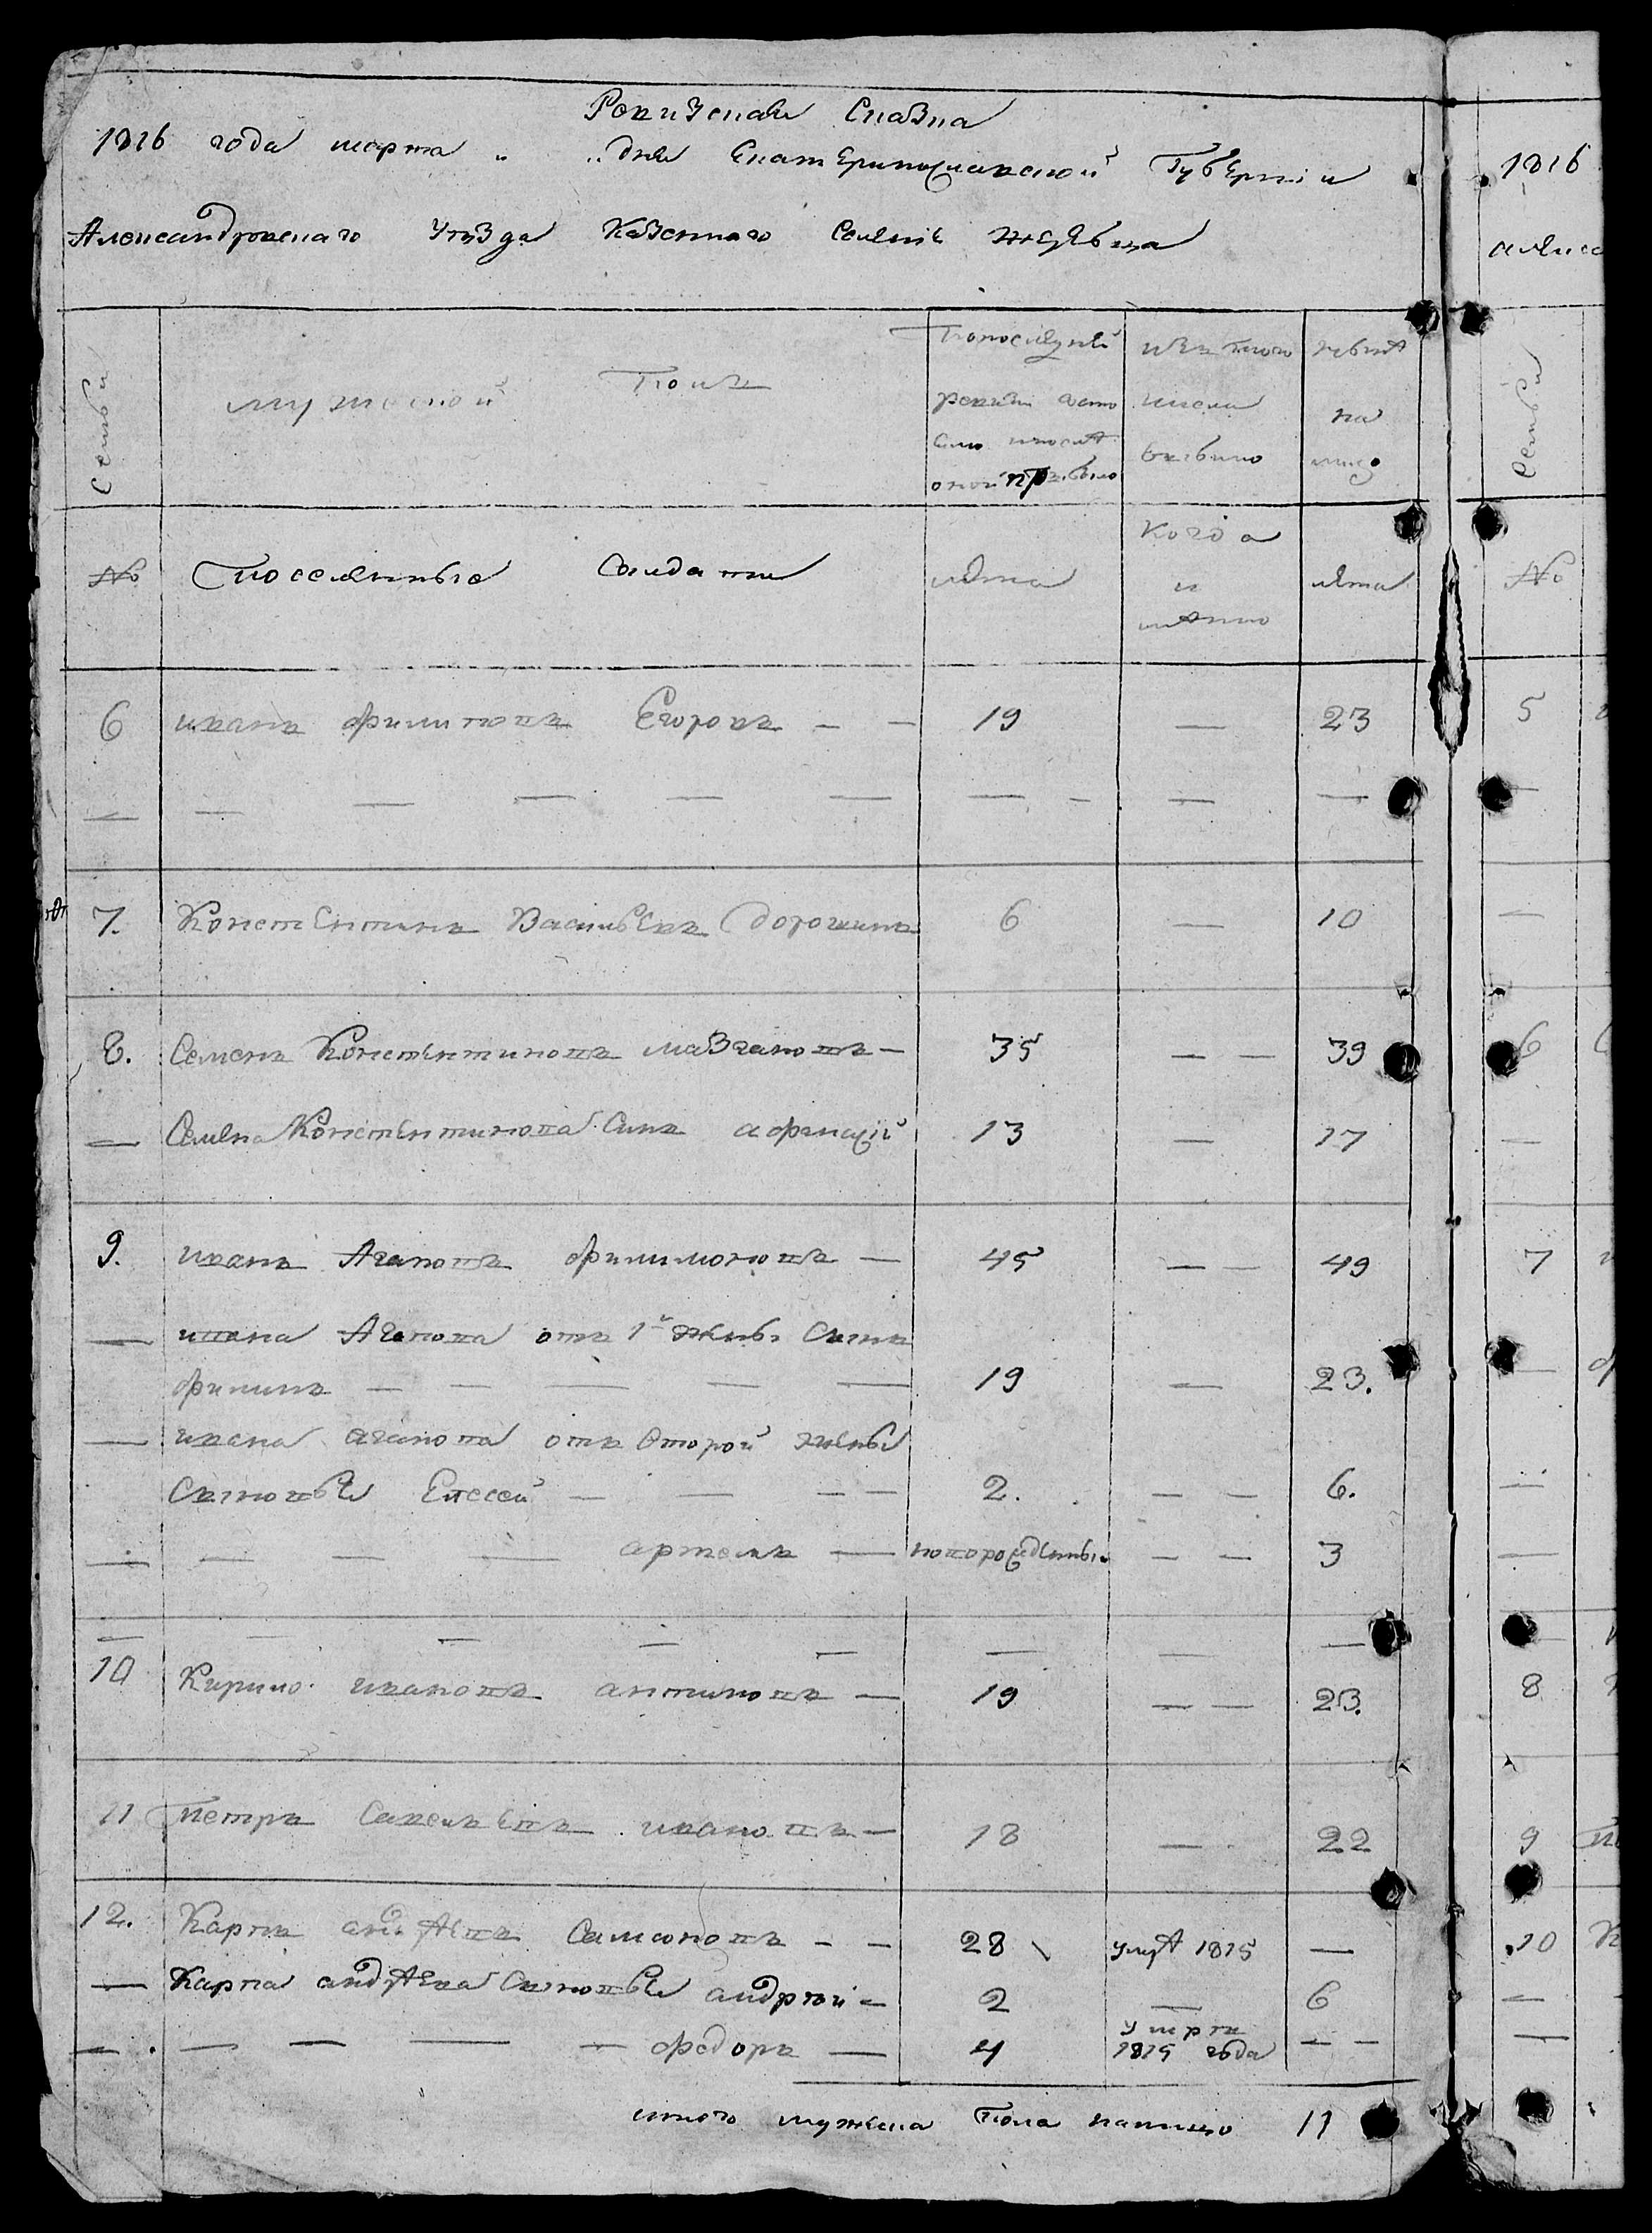 Ревизская Сказка
1816 года марта " " дня Екатеринославской Губернии
Александровского Уезда Казенного Селения
1816
Семьи
мужеской Полъ
По последней ревизии состояло и после оной прибыло
Изъ того числа выбыло
Ныне на лицо
Семьи
№ Поселянные Солдаты
лета
Когда и
лета
№
6 иванъ филиповъ Егоровъ — — 19 — 23
5
7. Констентинъ Васильевъ Дорошинъ 6 — 10
8. Семенъ Констентиновъ мазгановъ — 35 — — 39
6
— Семена Констентинова Сынъ афанасій 13 — 17
9. иванъ Агаповъ филимоновъ — 45 — — 49
7
— ивана Агапова отъ 1й жены Сынъ
филипъ — — — — — 19 — 23.
— ивана агапова отъ второй жены
Сыновья Елесей — — — — 2. — — 6.
— — — — артемъ — новорожденны — — 3
10 Кирило ивановъ антиповъ — 19 — — 23.
8
11 Петръ Савельевъ ивановъ — 18 — 22
9
12. Карпъ андреевъ Самсоновъ — — 28 1815 —
10
— Карпа андреева Сыновья андрей — 2 — 6
— — — — — федоръ — 4 умре 1815 года — —
итого мужеска Пола налицо 11